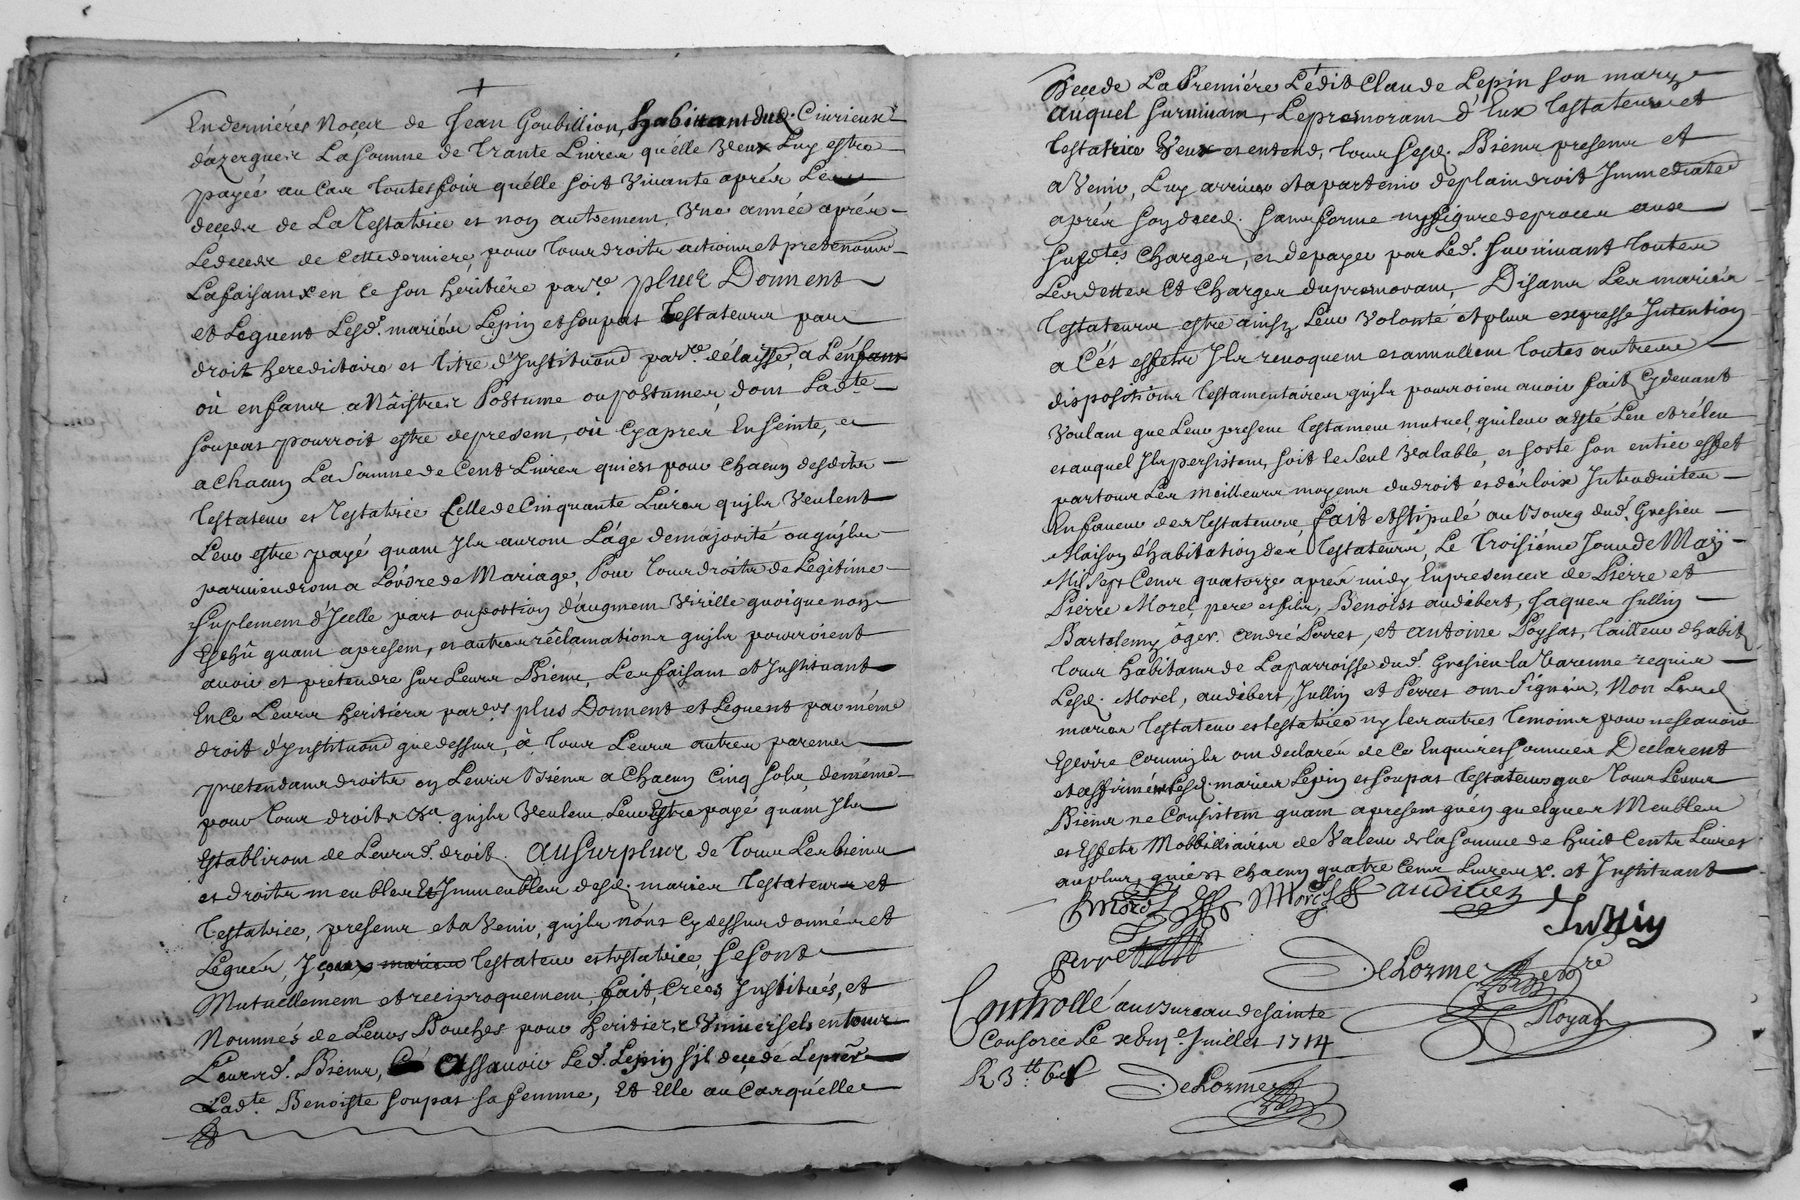 En derniéres Noces de Jean Goubillion, habittant dud. Civrieux
d'azergues La somme de Trante Livres qu'elle veux Luy estre
payée au cas toutesfois qu'elle soit vivante aprés Le
decedz de La Testatrice et non autrement. Une année aprés
Le decedz de Cette derniere, pour tous droits actions et pretentions
La faisant en Ce son heritière par.re plus Donnent
et Leguent Lesd. mariés Lepin et soupat Testateurs par
droit hereditaire et titre d'Institu.on par.re délaissé, a L'enfant
où enfans a Nâistres Postume ou postumes, dont Lad.te
soupat pourroit estre de present, où Cyapres Enseinte, et
a Chacun La Somme de Cent Livres qui est pour Chacun desdits
Testateur et Testatrice Celle de Cinquante Livres qu'ils veulent
Leur estre payé quant Ils auront L'âge de majorité ou qu'ils
parviendront a L'ordre de Mariage, Pour tous droits de Legitime
Suplement d'Icelle part ou portion d'augment virille quoique non
Eschû quant apresent, et autres réclamations qu'ils pourroient
avoir et pretendre sur Leurs Biens, Les faisant et Instituant
En Ce Leurs heritiers par.rs plus Donnent et Leguent par méme
droit d'Institu.on que dessus, à tous Leurs autres parens
pretendans droits en Leurs Biens a Chacun Cinq sols de méme
pour tous droits &a. qu'ils veulent Leur Estre payé quant Ils
Establiront de Leursd. droit. au surplus de tous Les biens
et droits meubles Et Immeubles desd. mariés Testateurs et
Testatrice, presens et a Venir, qu'ils n'ont Cy dessus donnés et
Legués, Iceux mariés Testateur et testatrice, se sont
Mutuellement et reciproquement, fait, Créés Institués, et
Nommés de Leurs Bouches pour heritiers Universels en tous
Leursd. Biens, assavoir Led. Lepin s'il decede Le pre.r
Lad.te Benoiste soupat sa femme, Et Elle au Cas qu'elle
Decede La Premiére Lédit Claude Lepin son mary
auquel survivant, Le premourant d'Eux Testateurs et
Testatrice Veux et entend, tous sesd. Biens presens et
a Venir, Luy arriver et apartenir de plain droit Immediate.t
aprés son deced. sans forme ny figure de procés aux
susd.tes Charges, et de payer par Led. survivant toutes
Les dettes Et Charges du premourant, Disans Les mariés
Testateurs estre ainsy Leur volonté et plus expresse Intention
a Cés effets Ils revoquent et annullent toutes autres
dispositions testamentaires qu'ils pourroient avoir fait Cy devant
Voulant que Leur present Testament mutuel, qui leur a Esté Leu et réleu
et auquel Ils persistent, soit le seul valable, et sorte son entier effet
par tous Les meilleurs moyens du droit et des loix Introduites
En faveur des Testateurs fait et stipulé au Bourg dud. Gresieu
Maison d'habitation dés Testateurs, Le Troisiéme Jour de Maÿ
Mil sept Cent quatorze aprés midy En presences de Pierre et
Pierre Morel, pere et fils, Benoist audibert, Jaques Jullin
Bartelemy ôger. andré Perret, et antoine Poysat, tailleur d'habit
tous habitans de La parroisse dud. Gresieu la Varenne requis
Lesd. Morel, audibert, Jullin et Perret ont signés, Non Lesd.
mariés testateur et testatrice ny les autres temoins pour ne scavoir
Escrire Comm'ils ont declarés de Ce Enquis et sommés Declarent
et affirment Lesd. mariés Lepin et soupat testateurs que tous Leurs
Biens ne Consistent quant apresent qu'en quelques Meubles
et Effets Mobilliaires de Valeur de la somme de huict Cents Livres
au plus, qui est chacun quatre Cens Livres. et Instituant
Morel Morel audiber Jullin
perret
Delorme no.re Royal
Controllé au Bureau de Sainte
Consorce Le Juillet 1714
R 3.tt 6 s Delorme